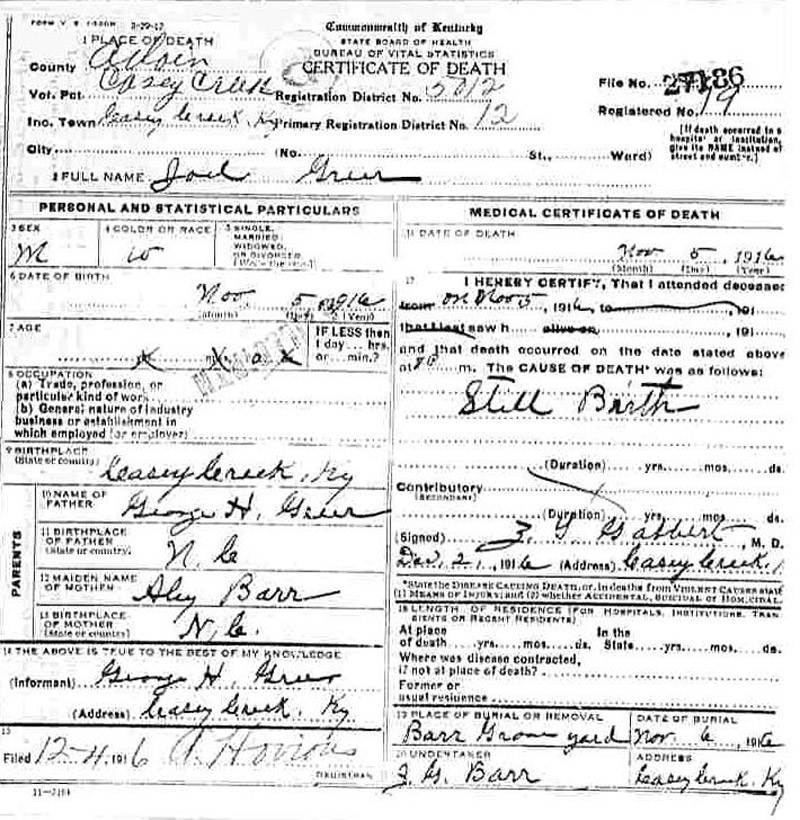 Commonwealth of Kentucky
STATE BOARD OF HEALTH
BUREAU OF VITAL STATISTICS
CERTIFICATE OF DEATH
1 PLACE OF DEATH
County
Vot. Pct. Casey Creek Registration District No. 5012
Inc. Town Casey Creek, Ky Primary Registration District No. 12
File No. 27186
Registered No. 19
[If death occurred in a hospital or institution, give its NAME instead of street and number.]
City (No. St., Ward)
2 FULL NAME Joel Greer
PERSONAL AND STATISTICAL PARTICULARS
3 SEX M
4 COLOR OR RACE W
5 SINGLE, MARRIED, WIDOWED, OR DIVORCED
6 DATE OF BIRTH
Nov 5 1916
(Month) (Day) (Year)
7 AGE
IF LESS than 1 day... hrs. or... min.?
8 OCCUPATION
(a) Trade, profession, or particular kind of work
(b) General nature of industry business or establishment in which employed (or employer)
9 BIRTHPLACE
(State or country) Casey Creek, Ky
PARENTS
10 NAME OF FATHER George H. Greer
11 BIRTHPLACE OF FATHER (State or country) N. C
12 MAIDEN NAME OF MOTHER Aley Barr
13 BIRTHPLACE OF MOTHER (State or country) N. C.
14 THE ABOVE IS TRUE TO THE BEST OF MY KNOWLEDGE
(Informant) George H. Greer
(Address) Casey Creek, Ky
15
Filed 12-4 1916
REGISTRAR
11-3184
MEDICAL CERTIFICATE OF DEATH
16 DATE OF DEATH
Nov 5, 1916
(Month) (Day) (Year)
17 I HEREBY CERTIFY, That I attended deceased
from on Nov 5, 1916, to 191
that I last saw h alive on , 191
and that death occurred on the date stated above
at m. The CAUSE OF DEATH* was as follows:
Still Birth
(Duration) yrs. mos. ds.
Contributory
(SECONDARY)
(Duration) yrs. mos. ds.
(Signed) Gabbert, M. D.
1916 (Address) Casey Creek
*State the DISEASE CAUSING DEATH, or, in deaths from VIOLENT CAUSES state
(1) MEANS OF INJURY; and (2) whether ACCIDENTAL, SUICIDAL or HOMICIDAL.
18 LENGTH OF RESIDENCE (FOR HOSPITALS, INSTITUTIONS, TRANSIENTS OR RECENT RESIDENTS)
At place of death yrs. mos. ds. In the State yrs. mos. ds.
Where was disease contracted,
if not at place of death?
Former or
usual residence
19 PLACE OF BURIAL OR REMOVAL
Barr Grave yard
DATE OF BURIAL
Nov. 6, 1916
20 UNDERTAKER
Barr
ADDRESS
Casey Creek, Ky